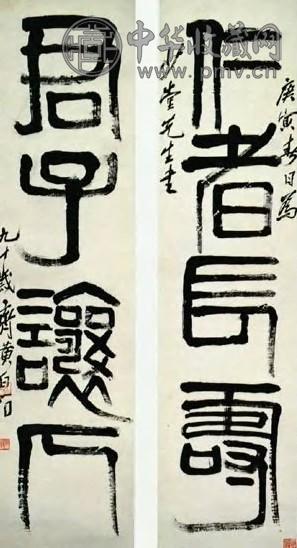 中华收藏网
http://www.pmv.cn
庚寅春日為
仁者長壽
堂先生書
君子讓人
九十歲齊璜白石